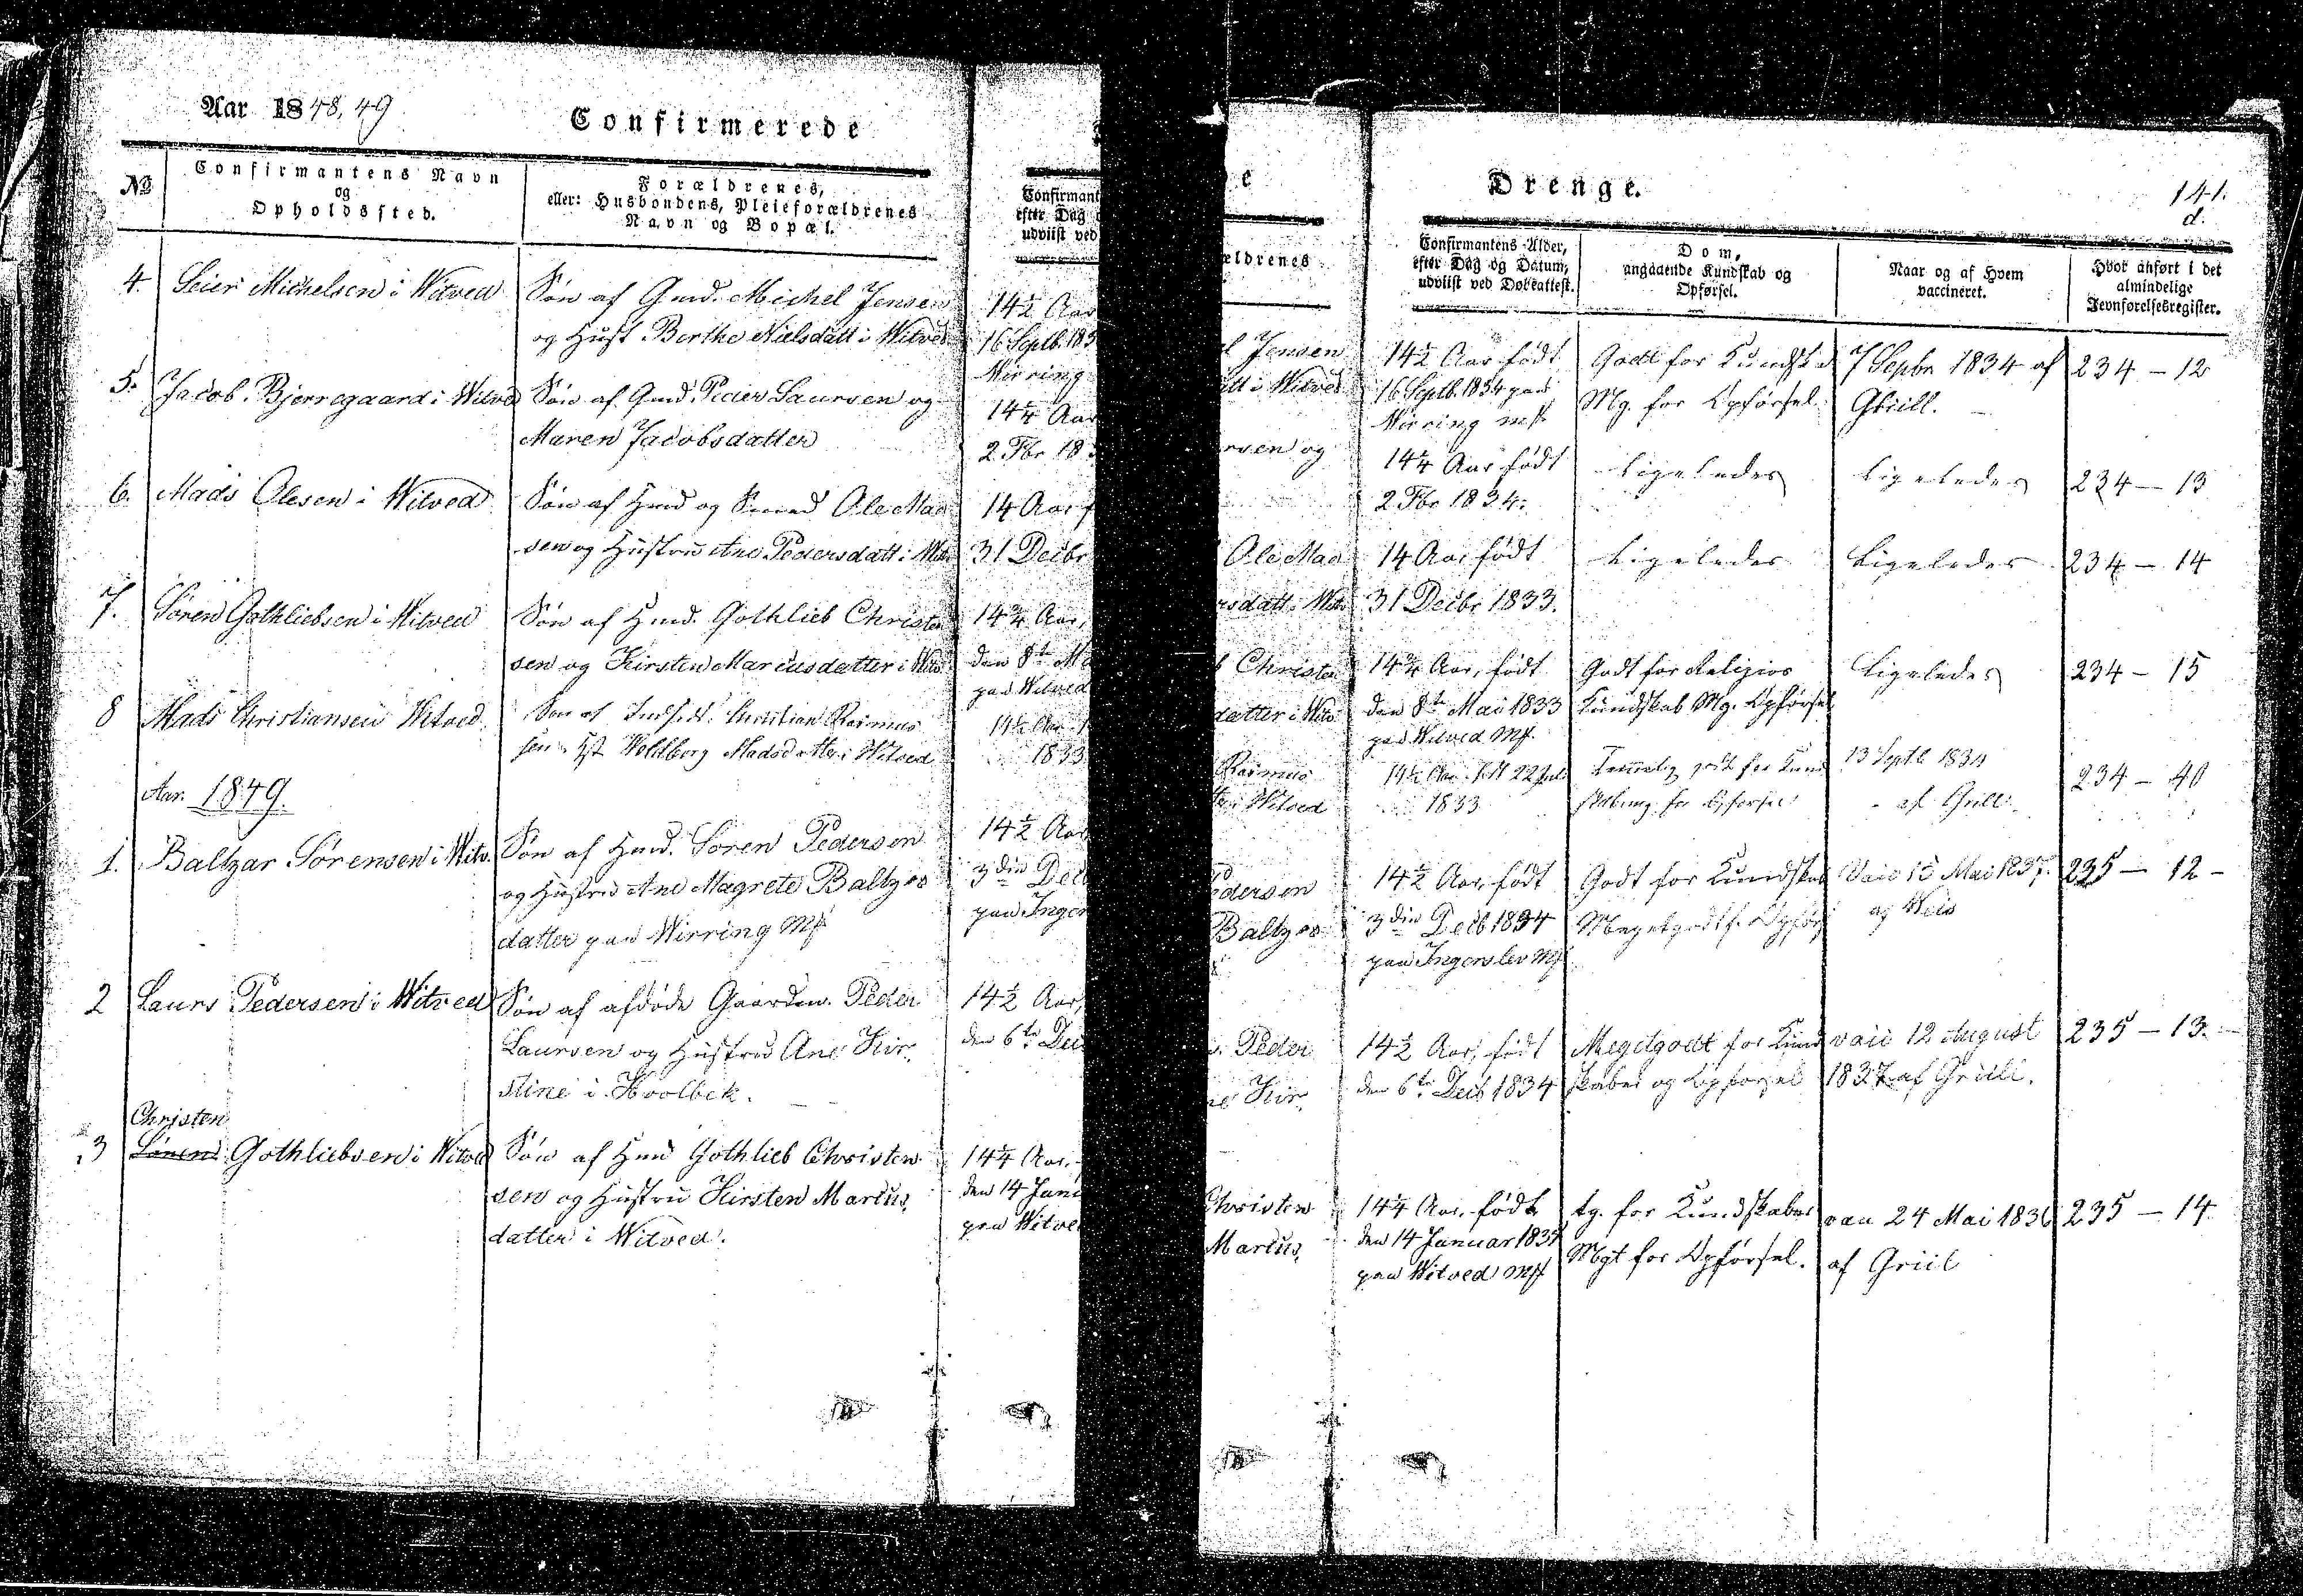 Aar 1848,49
Confirmerede
No
Confirmantens Navn
og
Opholdssted.
Forældrenes,
eller: Husbondens, Pleieforældrenes
Navn og Bopæl.
Confirmant
efter Dag
udviist ved
4. Seier Michelsen i Witved
Søn af Gmd. Michel Jensen
og Hust Berthe Nielsdatt i Witved
14½ Aar
16 Septb. 183
Wirring
5. Jacob Bjerregaard i Witved
Søn af Gmd. Peder Laursen og
Maren Jacobsdatter
14¼ Aar
2 Fbr 183
6. Mads Olesen i Witved
Søn af Hmd og Smed Ole Mad
sen og Hustru Ane Pedersdatt i Witv
14 Aar f
31 Decbr
7. Søren Gothliebsen i Witved
Søn af Hmd. Gothlieb Christen
sen og Kirsten Marcusdatter i Witv
14¾ Aar,
den 8de Ma
paa Witved
8 Mads Christiansen Witved
Søn af Indsidd. Christian Rasmus
sen Hst Woldborg Madsdatter i Witved
14½ Aar
1833
Aar 1849.
1. Baltzar Sørensen i Witv.
Søn af Hmd. Søren Pedersen
og Hustru Ane Magrete Baltzers
datter paa Wirring Mk
14½ Aar
3die Decb
paa Inger
2 Laurs Pedersen i Witved
Søn af afdøde Gaardm. Peder
Laursen og Hustru Ane Kir
stine i Hvolbek.
14½ Aar,
den 6te Dec
Christen
3 Søren Gothliebsen i Witved
Søn af Hmd Gothlieb Christen
sen og Hustru Kirsten Marcus
datter i Witved.
14¼ Aar,
den 14 Janu
paa Witve
e
Drenge.
141.
d.
ældrenes
Confirmantens Alder,
efter Dag og Datum,
udviist ved Døbeattest.
Dom,
angaaende Kundskab og
Opførsel.
Naar og af Hvem
vaccineret.
Hvor anført i det
almindelige
Jevnførelsesregister.
l Jensen
tt i Witved
14½ Aar født
16 Septb. 1834 paa
Wirring Mk
Godt for Kundskab
Mg. for Opførsel
7 Sepbr 1834 af
Griill.
234 - 12
rsen og
14¼ Aar født
2 Fbr 1834.
Ligeledes
Ligeledes
234 - 13
Ole Mad
rsdatt i Witv
14 Aar født
31 Decbr 1833.
Ligeledes
Ligeledes
234 - 14
b Christen
datter i Witv
14¾ Aar, født
den 8de Mai 1833
paa Witved Mk
Godt for Religios
Kundskab Mg. Opførsel
Ligeledes
234 - 15
Rasmus
ter i Witved
14½ Aar født 22 Juli
1833
Temmelig godt for Kund
skab mg. for Opførsel
13 Septb 1834
af Griill
234 - 40
Pedersen
Baltzers
14½ Aar, født
3die Decb 1834
paa Ingerslev Mk
Godt for Kundskab
Meget godt f. Opførs
Vacc 15 Mai 1837.
af Weis
235 - 12 -
. Peder
ne Kir
14½ Aar, født
den 6te Decb 1834
Meget godt for Kund
skaber og Opførsel
vacc 12 August
1837 af Griill.
235 - 13.
Christen
Marcus
14¼ Aar, født
den 14 Januar 1835
paa Witved Mk
tg. for Kundskaber
Mgt for Opførsel.
vac 24 Mai 1836
af Griil
235 - 14.